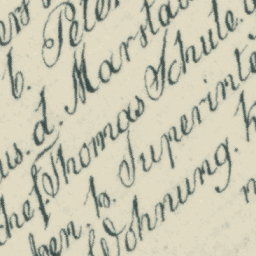 b. Peter
us. d. Marsta
chef. Thomas Schule.
ker. b. Superinte
Wohnung.